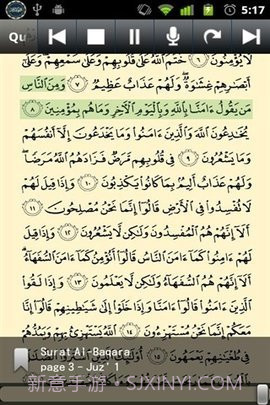 5:17
Qu
لَا يُؤْمِنُونَ ٦ خَتَمَ ٱللَّهُ عَلَىٰ قُلُوبِهِمْ وَعَلَىٰ سَمْعِهِمْ وَعَلَىٰٓ
أَبْصَٰرِهِمْ غِشَٰوَةٌ وَلَهُمْ عَذَابٌ عَظِيمٌ ٧ وَمِنَ ٱلنَّاسِ
مَن يَقُولُ ءَامَنَّا بِٱللَّهِ وَبِٱلْيَوْمِ ٱلْءَاخِرِ وَمَا هُم بِمُؤْمِنِينَ ٨
يُخَٰدِعُونَ ٱللَّهَ وَٱلَّذِينَ ءَامَنُوا۟ وَمَا يَخْدَعُونَ إِلَّآ أَنفُسَهُمْ
وَمَا يَشْعُرُونَ ٩ فِى قُلُوبِهِم مَّرَضٌ فَزَادَهُمُ ٱللَّهُ مَرَضًا
وَلَهُمْ عَذَابٌ أَلِيمٌۢ بِمَا كَانُوا۟ يَكْذِبُونَ ١٠ وَإِذَا قِيلَ لَهُمْ
لَا تُفْسِدُوا۟ فِى ٱلْأَرْضِ قَالُوٓا۟ إِنَّمَا نَحْنُ مُصْلِحُونَ ١١
أَلَآ إِنَّهُمْ هُمُ ٱلْمُفْسِدُونَ وَلَٰكِن لَّا يَشْعُرُونَ ١٢ وَإِذَا قِيلَ
لَهُمْ ءَامِنُوا۟ كَمَآ ءَامَنَ ٱلنَّاسُ قَالُوٓا۟ أَنُؤْمِنُ كَمَآ ءَامَنَ ٱلسُّفَهَآءُ
أَلَآ إِنَّهُمْ هُمُ ٱلسُّفَهَآءُ وَلَٰكِن لَّا يَعْلَمُونَ ١٣ وَإِذَا لَقُوا۟
ٱلَّذِينَ ءَامَنُوا۟ قَالُوٓا۟ ءَامَنَّا وَإِذَا خَلَوْا۟ إِلَىٰ شَيَٰطِينِهِمْ قَالُوٓا۟ إِنَّا
مَعَكُمْ إِنَّمَا نَحْنُ مُسْتَهْزِءُونَ ١٤ ٱللَّهُ يَسْتَهْزِئُ بِهِمْ وَيَمُدُّهُمْ
فِى طُغْيَٰنِهِمْ يَعْمَهُونَ ١٥
Surat Al-Baqara
page 3 - Juz' 1
新意手游·SJXINYI.COM